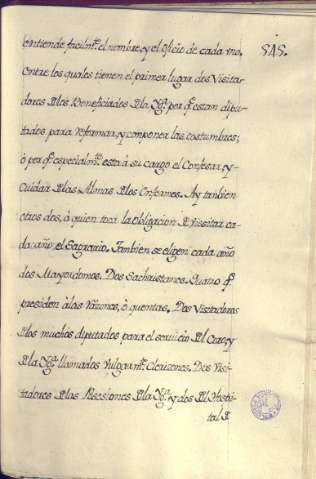 contiende facilm.te el nombre, y el oficio de cada uno. 545.
Entre los quales tienen el primer lugar dos Visita-
dores Dlos Beneficiados Dla Yg.a porq.e estan dipu-
tados para reformar, y componer las costumbres;
ò porq.e especialm.te està à su cargo el Confesar, y
Cuidar Dlas Almas Dlos Enfermos. Ay tambien
otros dos, à quien toca la Obligacion D Vissitar ca-
da año el Sagrario. Tambien se eligen cada año
dos Mayordomos. Dos Sachristanes. Quatro q.e
presiden à las Razones, ò quentas. Dos Visitadores
Dlos muchos diputados para el servicio Dl Coro, y
Dla Yg.a llamados Vulgarm.te Clerizones. Dos Visi-
tadores Dlas Posesiones Dla Yg.a y dos Dl Hospi-
tal D